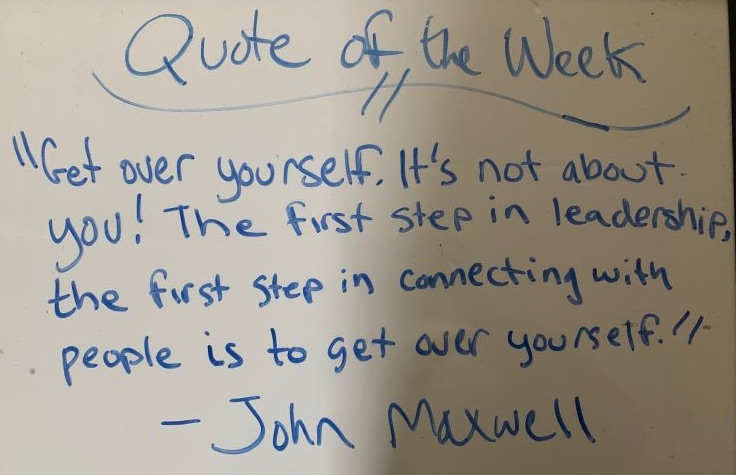 Quote of the Week
"Get over yourself. It's not about
you! The first step in leadership,
the first step in connecting with
people is to get over yourself."
- John Maxwell